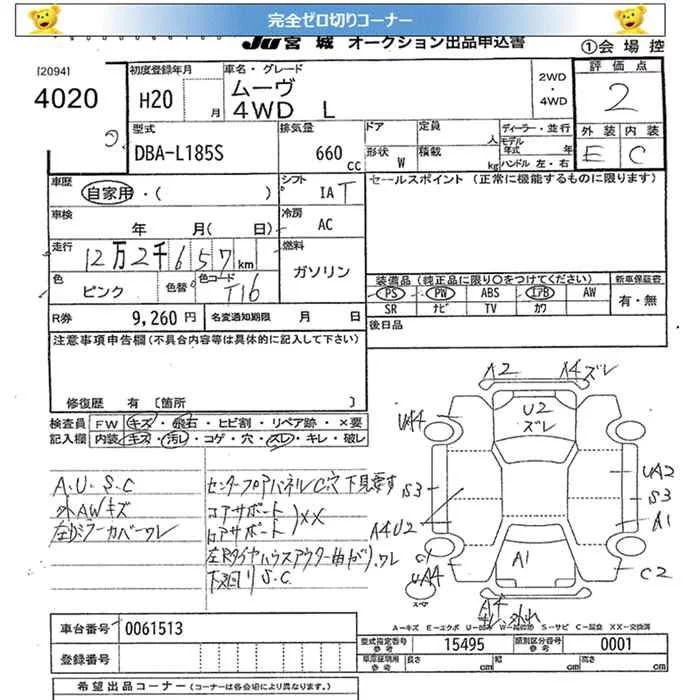 完全ゼロ切りコーナー
JU宮城 オークション出品申込書
①会場控
[2094]
4020
初度登録年月
H20 月
車名・グレード
ムーヴ
4WD L
2WD
・
4WD
評価点
2
外装 内装
E C
型式
DBA-L185S
排気量
660 cc
ドア
形状 W
定員 人
積載 kg
ディーラー・並行
モデル年式 年
ハンドル 左・右
車歴
自家用・( )
シフト
IAT
セールスポイント (正常に機能するものに限ります)
車検
年 月( 日)
冷房
AC
走行
12万2千657km
燃料
ガソリン
色
ピンク
色替
色コード
T16
装備品 (純正品に限り○をつけてください)
新車保証書
PS PW ABS エアB AW
有・無
SR ナビ TV カワ
R券
9,260円
名変通知期限 月 日
後日品
注意事項申告欄(不具合内容等は具体的に記入して下さい)
修復歴 有 〔箇所 〕
検査員記入欄
FW キズ・飛石・ヒビ割・リペア跡・×要
内装 キズ・汚レ・コゲ・穴・スレ・キレ・破レ
A.U.S.C
外AWキズ
センターフロアパネルC穴 下見要す
コアサポート
ロアサポート
)××
下廻りS.C
A2
A4ズレ
UA4
U2
ズレ
S3
A4U2
UA2
S3
A1
A1
UA4
C2
A-キズ E-エクボ U-凹み W-補修跡 S-サビ C-腐食 XX-交換済
車台番号
0061513
登録番号
型式指定番号
参考
15495
類別区分番号
参考
0001
長さ cm 幅 cm 高さ cm
希望出品コーナー (コーナーは各会場により異なります。)